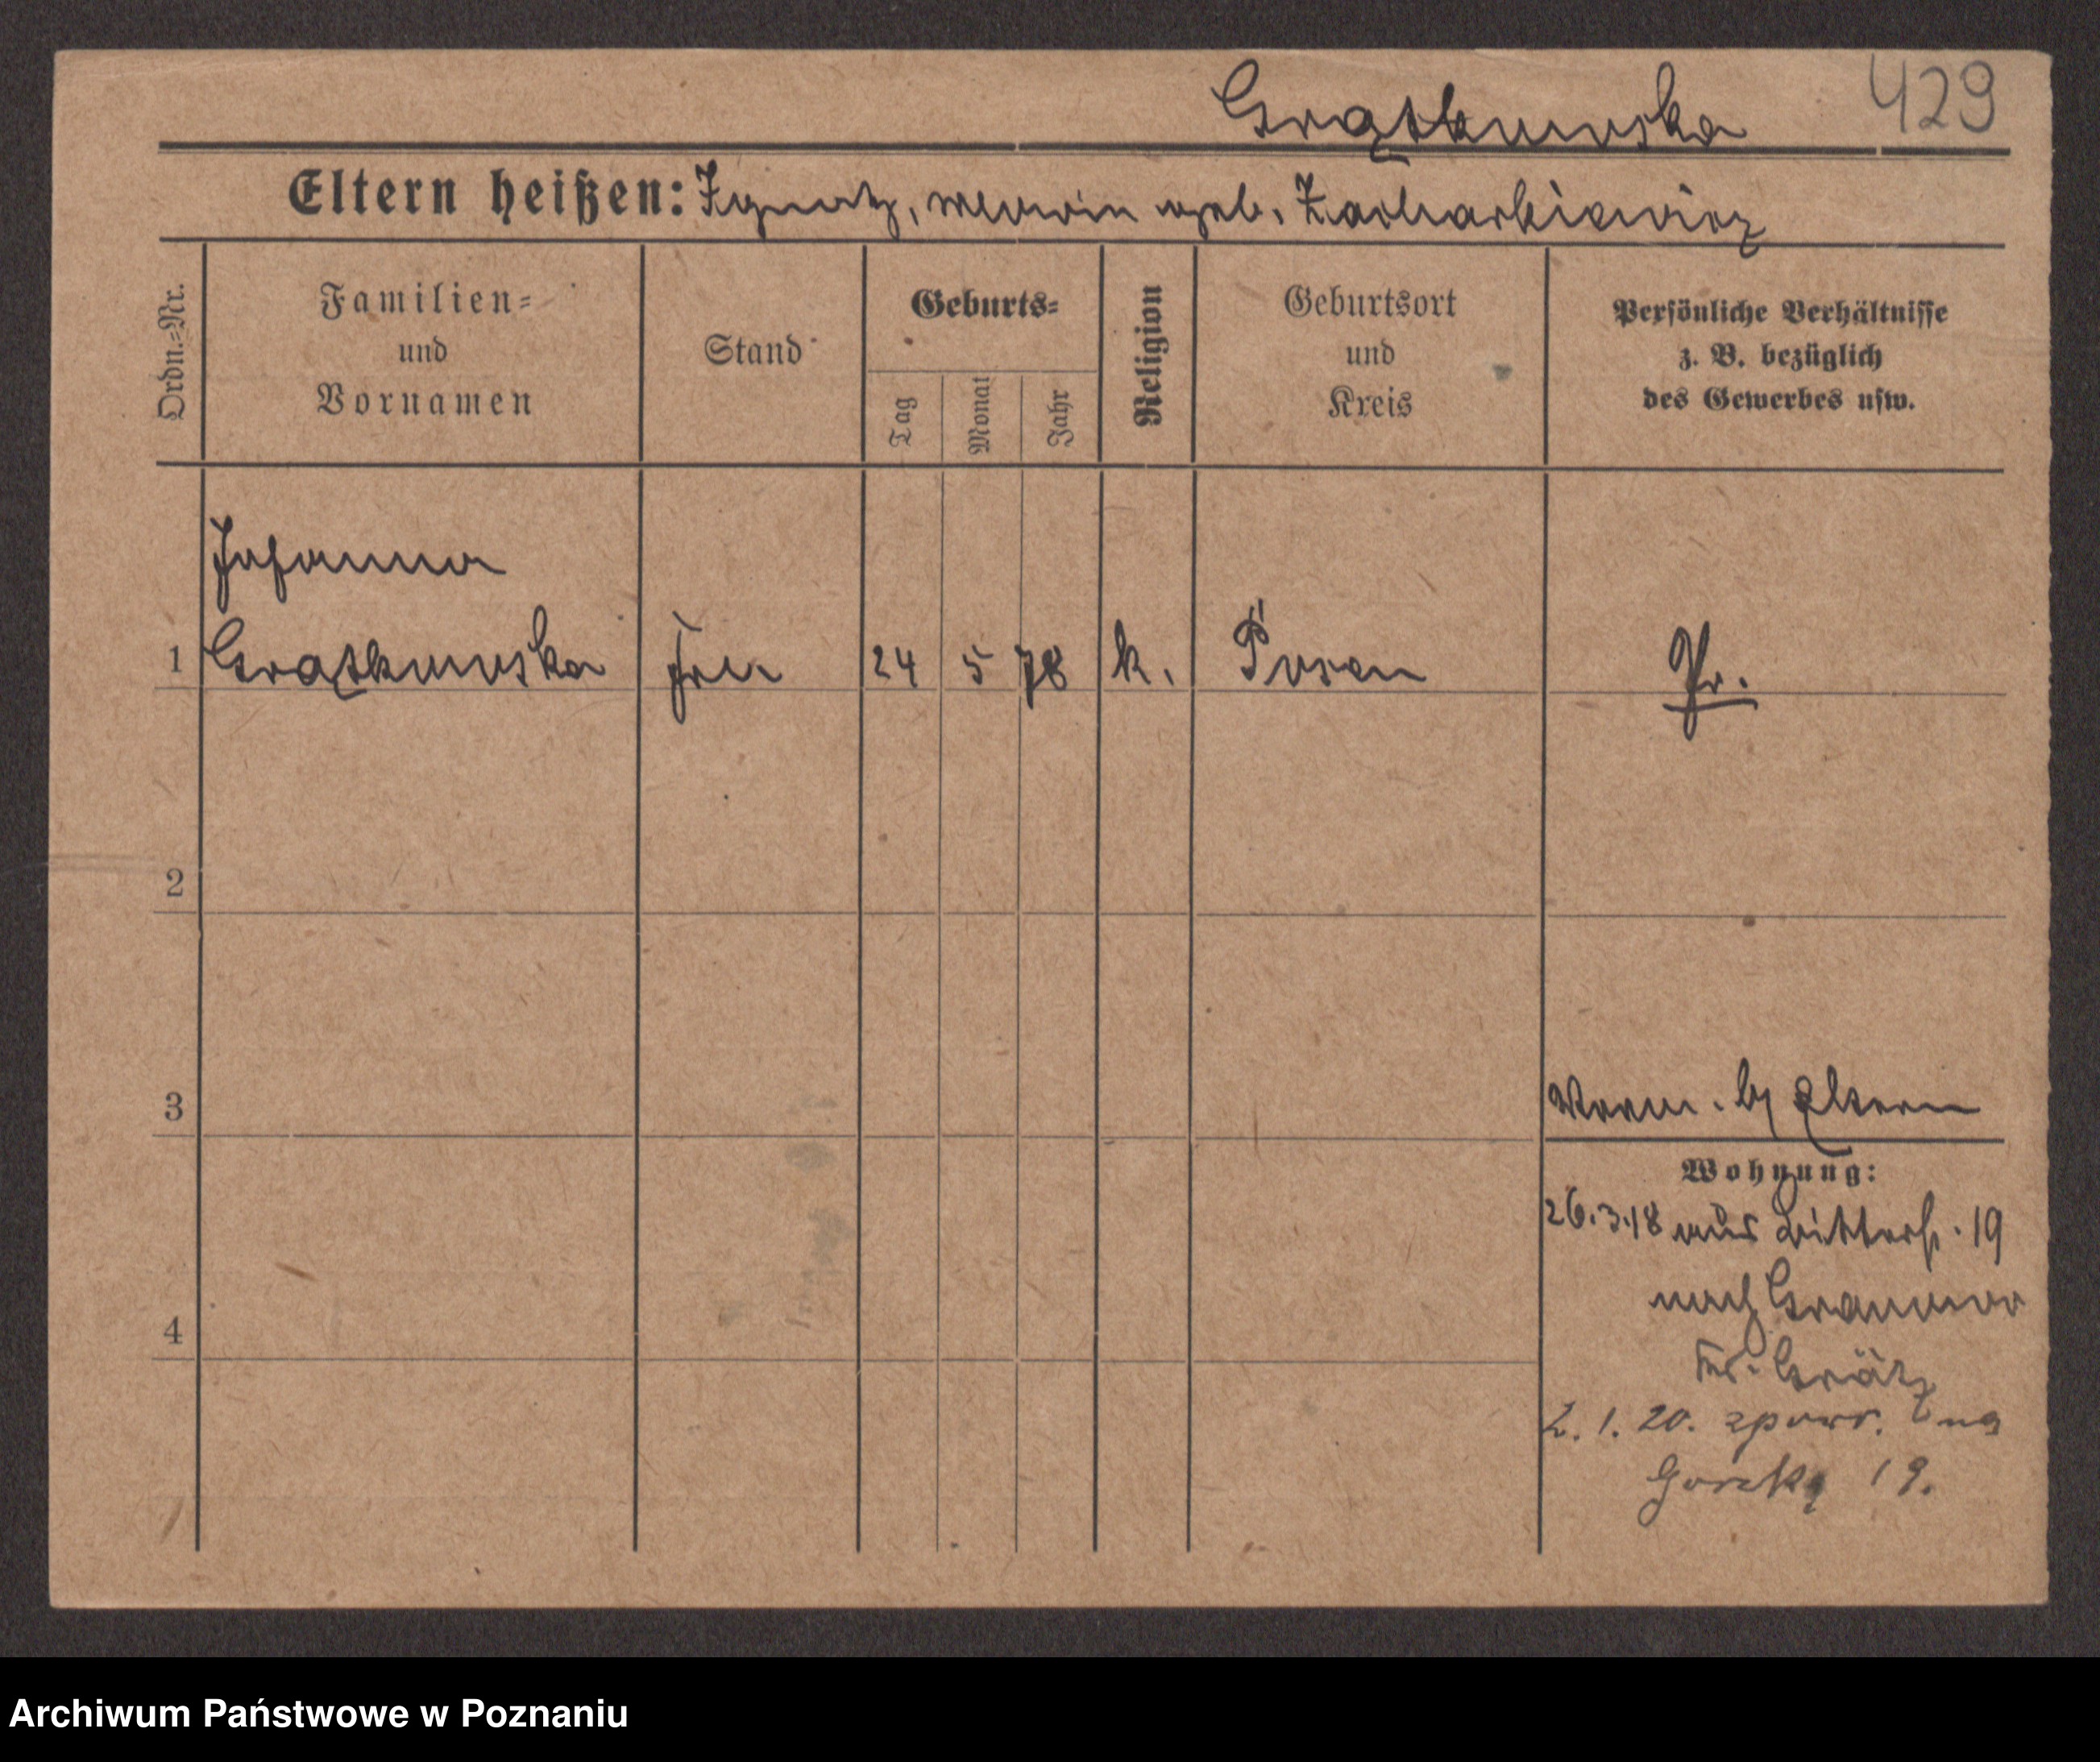 Grątkowska 429
Eltern heißen: Ignatz, Maria geb. Zacharkiewicz
Ordn.=Nr.
Familien=
und
Vornamen
Stand
Geburts=
Tag
Monat
Jahr
Religion
Geburtsort
und
Kreis
Persönliche Verhältnisse
z. B. bezüglich
des Gewerbes usw.
Johanna
1 Grątkowska Frl. 24 5 78 k. Posen Pr.
2
3
b/ Eltern
Wohnung:
26.3.18 aus Ritterstr. 19
nach Granowo
Kr. Grätz
2. 1. 20. zpowr. na
Gorzką 19.
4
Archiwum Państwowe w Poznaniu